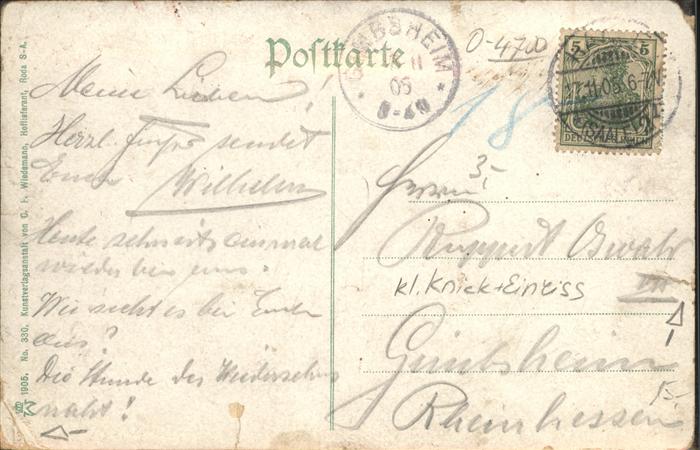 Postkarte
GIMBSHEIM
11
05
8-9 N
O-4700
5 5
DEUTSCHES REICH
17.11.05. 6-7N
18
3,-
Meine Lieben!
Herzl. Grüße sendet
Euch Wilhelm
Heute schneits einmal
wieder bei uns.
Wie sieht es bei Euch
aus?
Die Stunde des Wiedersehns
naht!
Herrn
Ruppert Oswald
in
kl. Knick + Einriss
Gimbsheim
Rheinhessen
15-
1905. No. 330. Kunstverlagsanstalt von C. F. Wiedemann, Hoflieferant, Roda S-A.